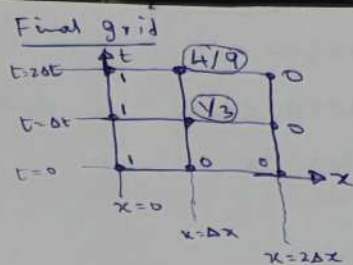 Final grid
t
t=2Δt 1 4/9 0
t=Δt 1 1/3 0
t=0 1 0 0 x
x=0
x=Δx
x=2Δx